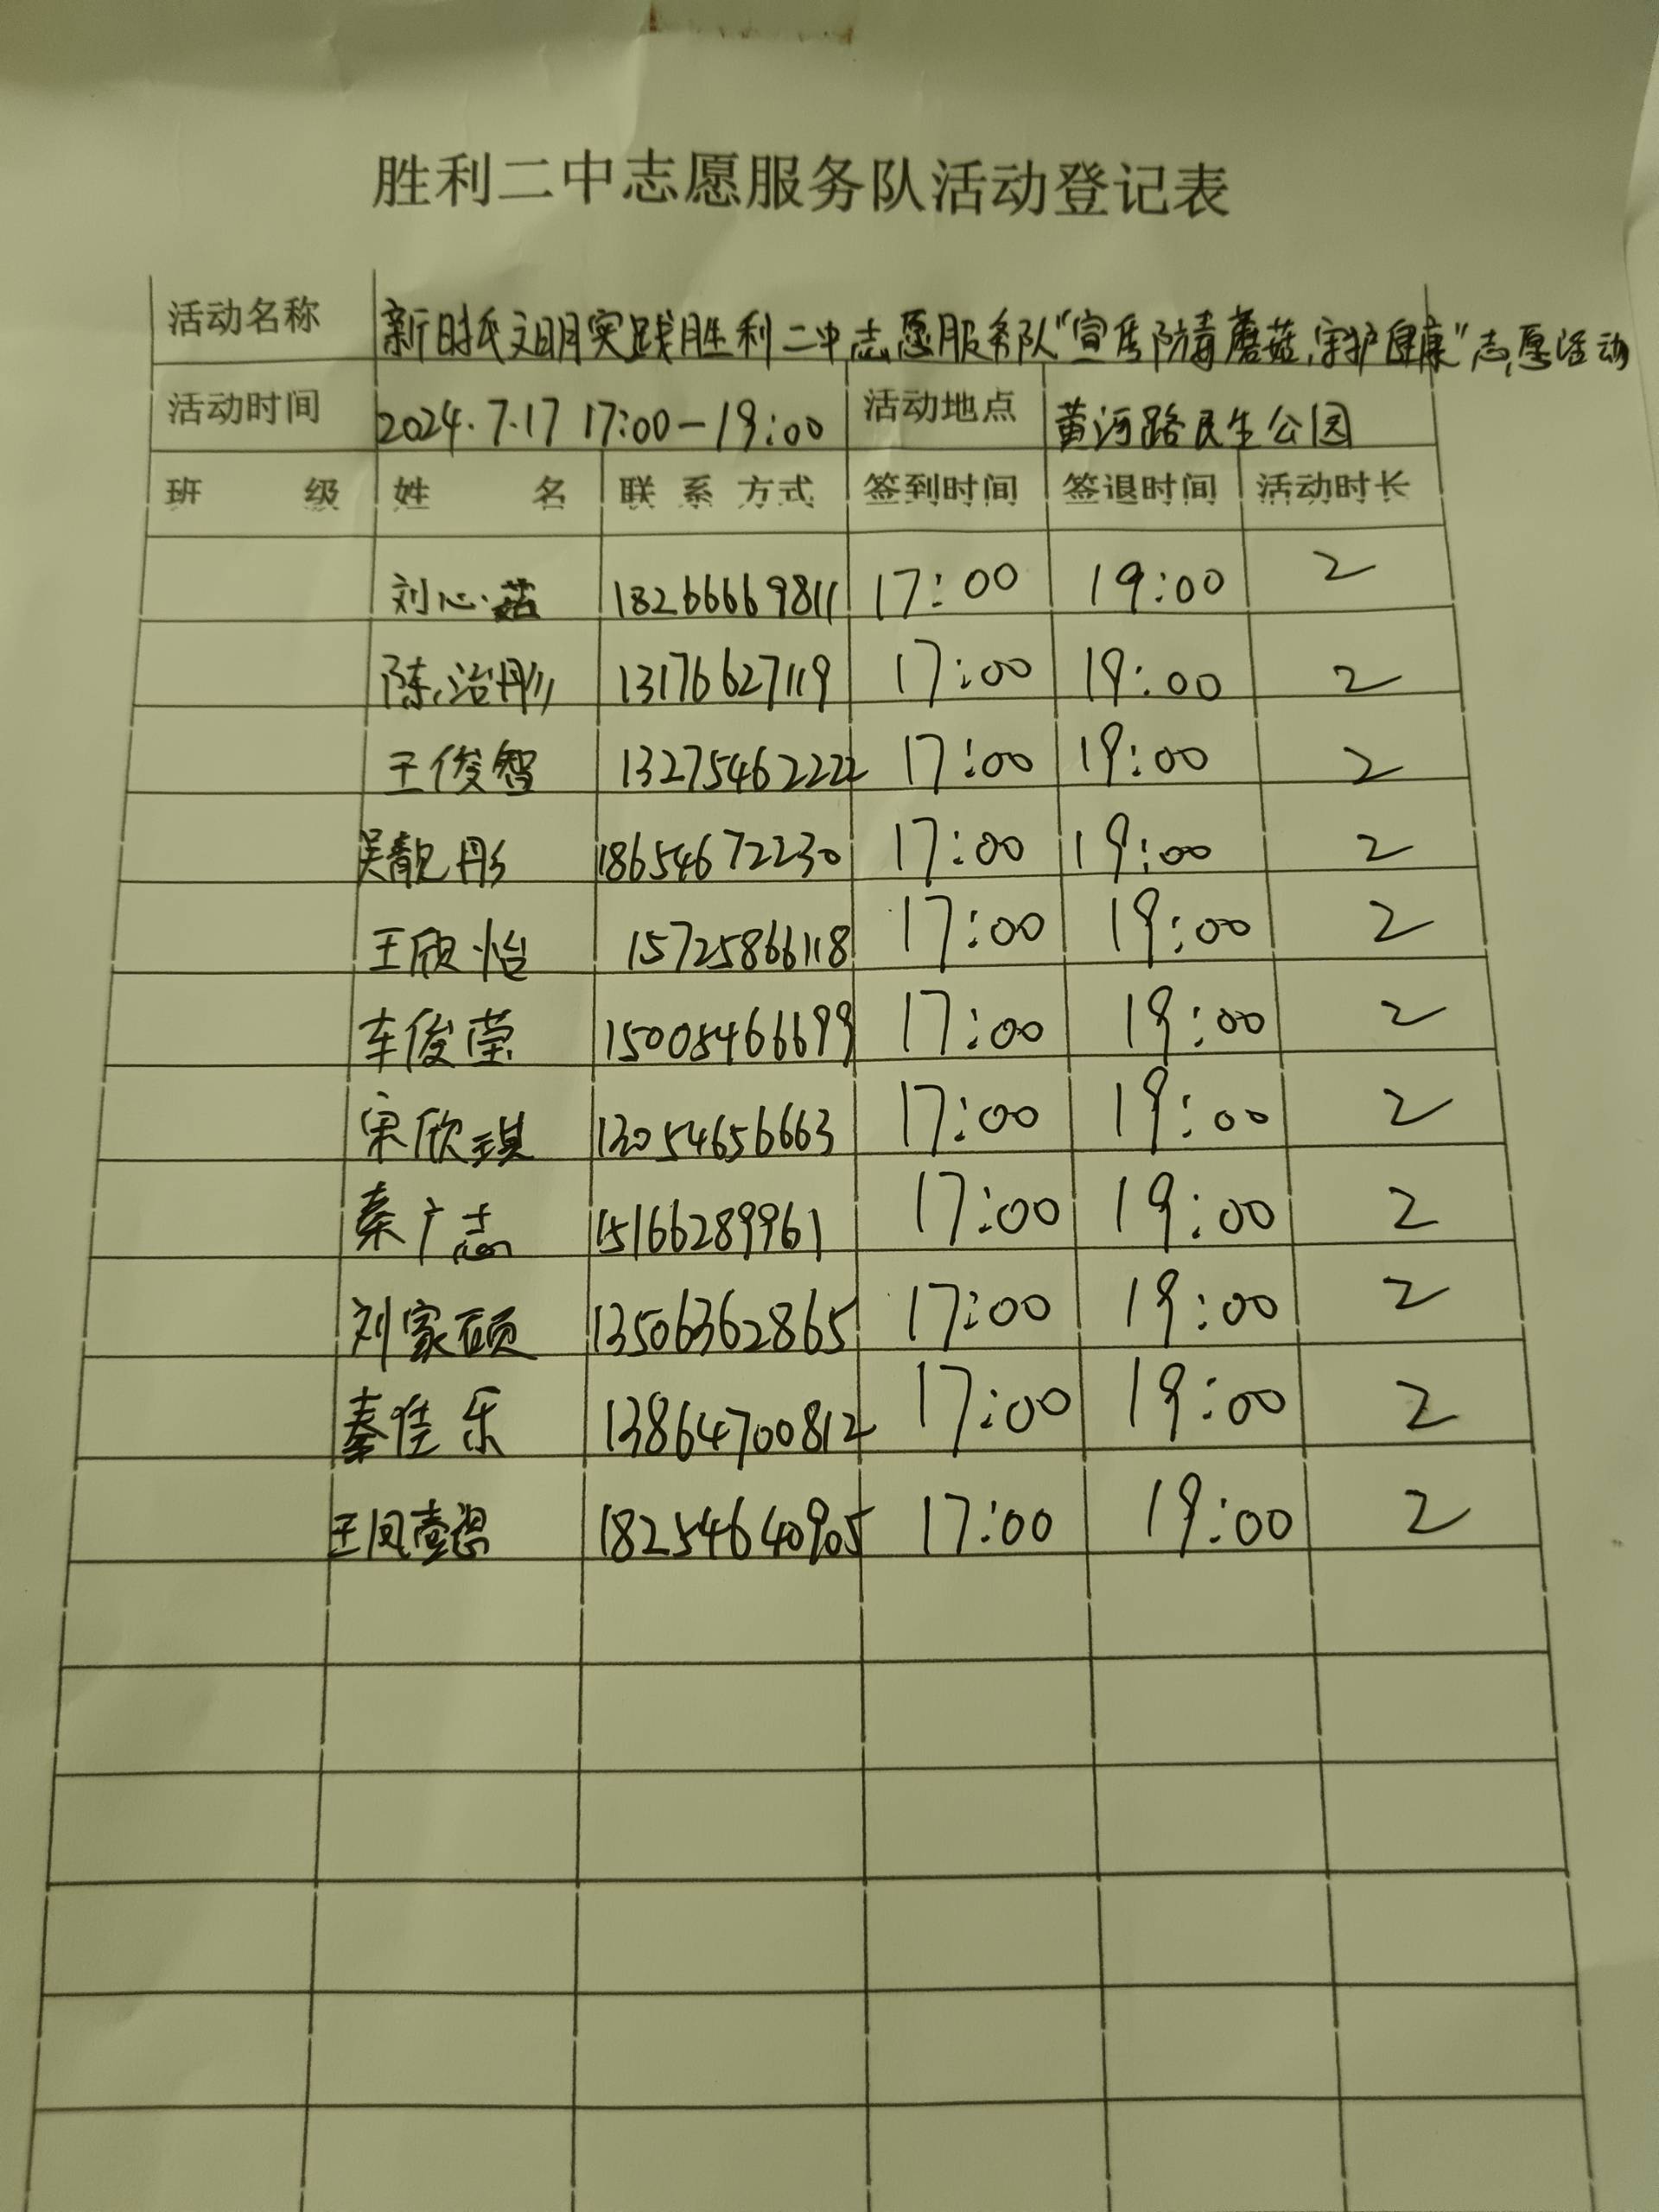 胜利二中志愿服务队活动登记表
活动名称 新时代文明实践胜利二中志愿服务队"宣传防毒蘑菇,守护健康"志愿活动
活动时间 2024.7.17 17:00-19:00 活动地点 黄河路民生公园
班级 姓名 联系方式 签到时间 签退时间 活动时长
刘心菇 18266669811 17:00 19:00 2
陈治彤 13176627119 17:00 19:00 2
王俊智 13275462222 17:00 19:00 2
吴靓彤 18654672230 17:00 19:00 2
王欣怡 15725866118 17:00 19:00 2
车俊莹 15005466699 17:00 19:00 2
宋欣琪 13054656663 17:00 19:00 2
秦广志 15166289961 17:00 19:00 2
刘家硕 13506362865 17:00 19:00 2
秦佳乐 13864700812 17:00 19:00 2
王凤 18254640905 17:00 19:00 2